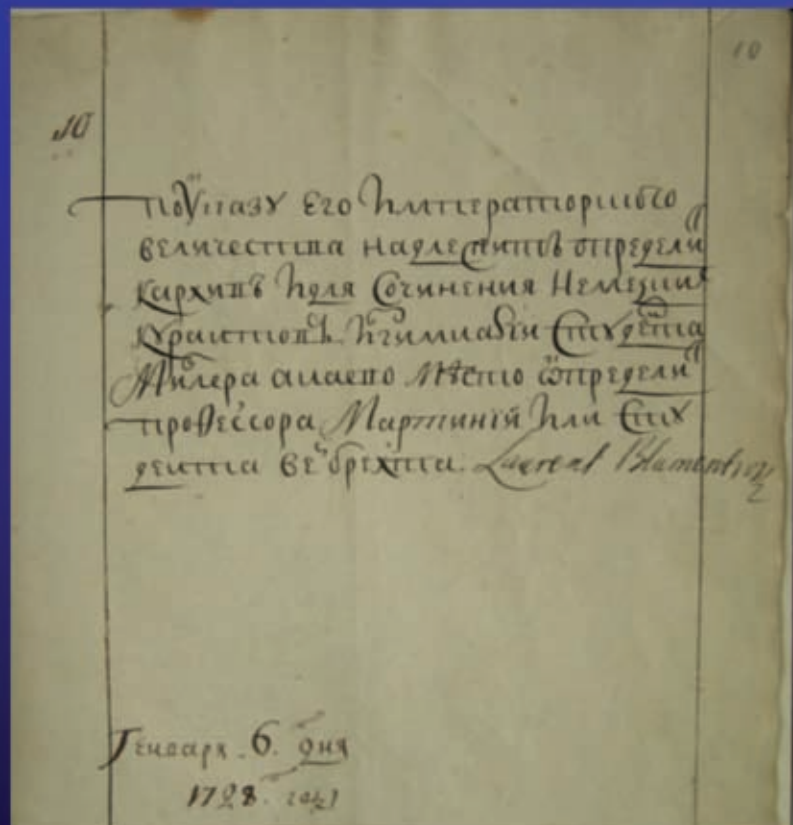 10
10
По Указу Его Императоршого
величества надлежитъ определи
к архивъ и для Сочинения Немецких
курантовъ и гимнасии Студента
Милера а на ево Место определи
профессора Мартиния или Сту
дента Вебрехта. Laurent Blumentrost
Генваря 6. дня
1728. году